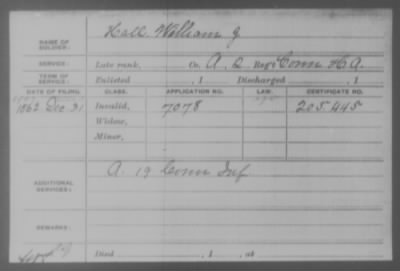 NAME OF SOLDIER: Hall, William J.
SERVICE: Late rank, Co. A, 2 Reg't Conn H A.
TERM OF SERVICE: Enlisted , 1 Discharged , 1
DATE OF FILING. CLASS. APPLICATION NO. LAW. CERTIFICATE NO.
1862 Dec 31 Invalid, 7078 205,445
Widow,
Minor,
ADDITIONAL SERVICES: A. 19 Conn Inf
REMARKS:
Died , 1 , at